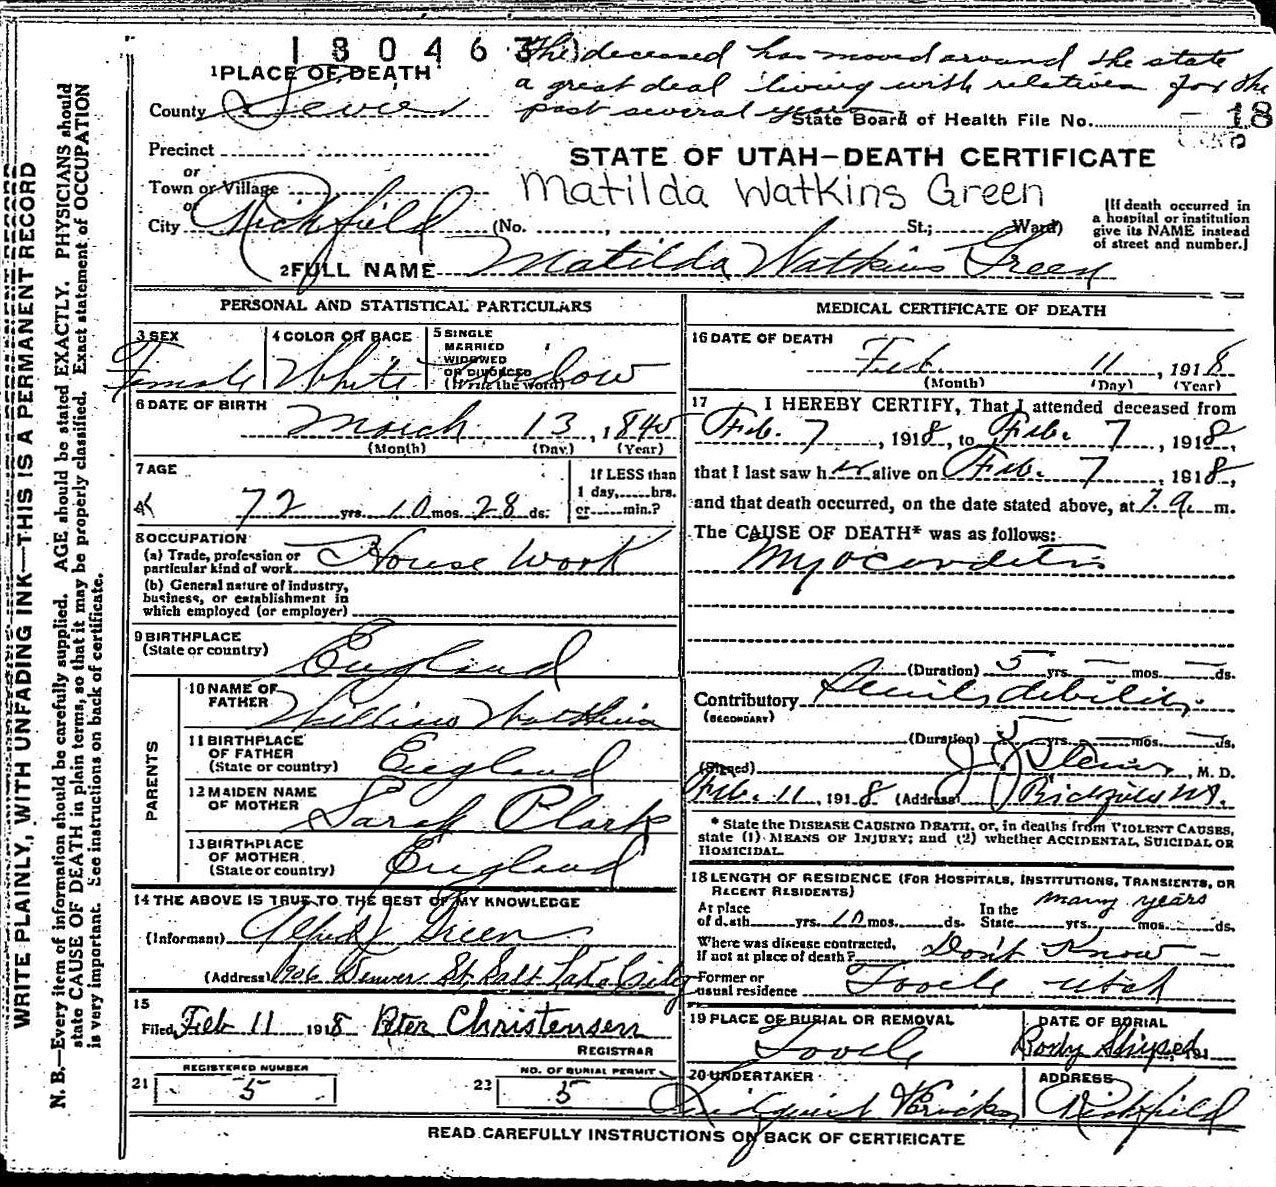 180463
The deceased has moved around the state
a great deal living with relatives for the
past several years
1 PLACE OF DEATH
County Sevier
State Board of Health File No. 18
Precinct
or
Town or Village
or
City Richfield (No. St.; Ward)
STATE OF UTAH—DEATH CERTIFICATE
Matilda Watkins Green
[If death occurred in
a hospital or institution
give its NAME instead
of street and number.]
2 FULL NAME Matilda Watkins Green
PERSONAL AND STATISTICAL PARTICULARS
3 SEX
Female
4 COLOR OR RACE
White
5 SINGLE
MARRIED
WIDOWED
OR DIVORCED
(Write the word)
6 DATE OF BIRTH
March 13, 1845
(Month) (Day) (Year)
7 AGE
72 yrs. 10 mos. 28 ds.
If LESS than
1 day, hrs.
or min.?
8 OCCUPATION
(a) Trade, profession or
particular kind of work House Work
(b) General nature of industry,
business, or establishment in
which employed (or employer)
9 BIRTHPLACE
(State or country) England
PARENTS
10 NAME OF
FATHER William Watkins
11 BIRTHPLACE
OF FATHER
(State or country) England
12 MAIDEN NAME
OF MOTHER Sarah Clark
13 BIRTHPLACE
OF MOTHER
(State or country) England
14 THE ABOVE IS TRUE TO THE BEST OF MY KNOWLEDGE
(Informant) Alfred J Green
(Address) 906 Denver St. Salt Lake City
15
Filed Feb 11 1918 Peter Christensen
REGISTRAR
21 REGISTERED NUMBER
5
22 NO. OF BURIAL PERMIT
5
MEDICAL CERTIFICATE OF DEATH
16 DATE OF DEATH
Feb. 11, 1918
(Month) (Day) (Year)
17 I HEREBY CERTIFY, That I attended deceased from
Feb. 7, 1918, to Feb. 7, 1918,
that I last saw her alive on Feb. 7, 1918,
and that death occurred, on the date stated above, at 7 a. m.
The CAUSE OF DEATH* was as follows:
Myocarditis
(Duration) 5 yrs. — mos. — ds.
Contributory Senile debility
(SECONDARY)
(Duration) 5 yrs. — mos. — ds.
(Signed) M. D.
Feb. 11, 1918 (Address) Richfield Ut.
* State the DISEASE CAUSING DEATH, or, in deaths from VIOLENT CAUSES,
state (1) MEANS OF INJURY; and (2) whether ACCIDENTAL, SUICIDAL OR
HOMICIDAL.
18 LENGTH OF RESIDENCE (FOR HOSPITALS, INSTITUTIONS, TRANSIENTS, OR
RECENT RESIDENTS)
At place
of death yrs. 10 mos. ds. In the
State many years yrs. mos. ds.
Where was disease contracted,
if not at place of death? Don't Know —
Former or
usual residence Tooele Utah
19 PLACE OF BURIAL OR REMOVAL
Tooele
DATE OF BURIAL
Body Shiped, 191
20 UNDERTAKER
ADDRESS
Richfield
READ CAREFULLY INSTRUCTIONS ON BACK OF CERTIFICATE
WRITE PLAINLY, WITH UNFADING INK—THIS IS A PERMANENT RECORD
N. B.—Every item of information should be carefully supplied. AGE should be stated EXACTLY. PHYSICIANS should
state CAUSE OF DEATH in plain terms, so that it may be properly classified. Exact statement of OCCUPATION
is very important. See instructions on back of certificate.